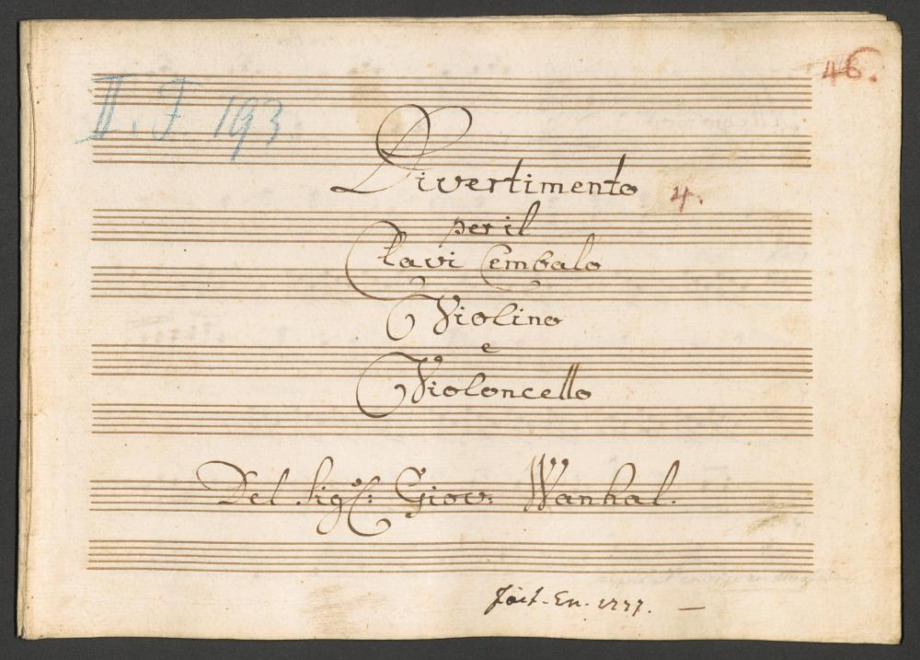 46.
II. J. 193.
Divertimento 4.
per il
Clavi Cembalo
Violino
e
Violoncello
Del Sigre: Giov: Wanhal.
fait. En. 1777. —